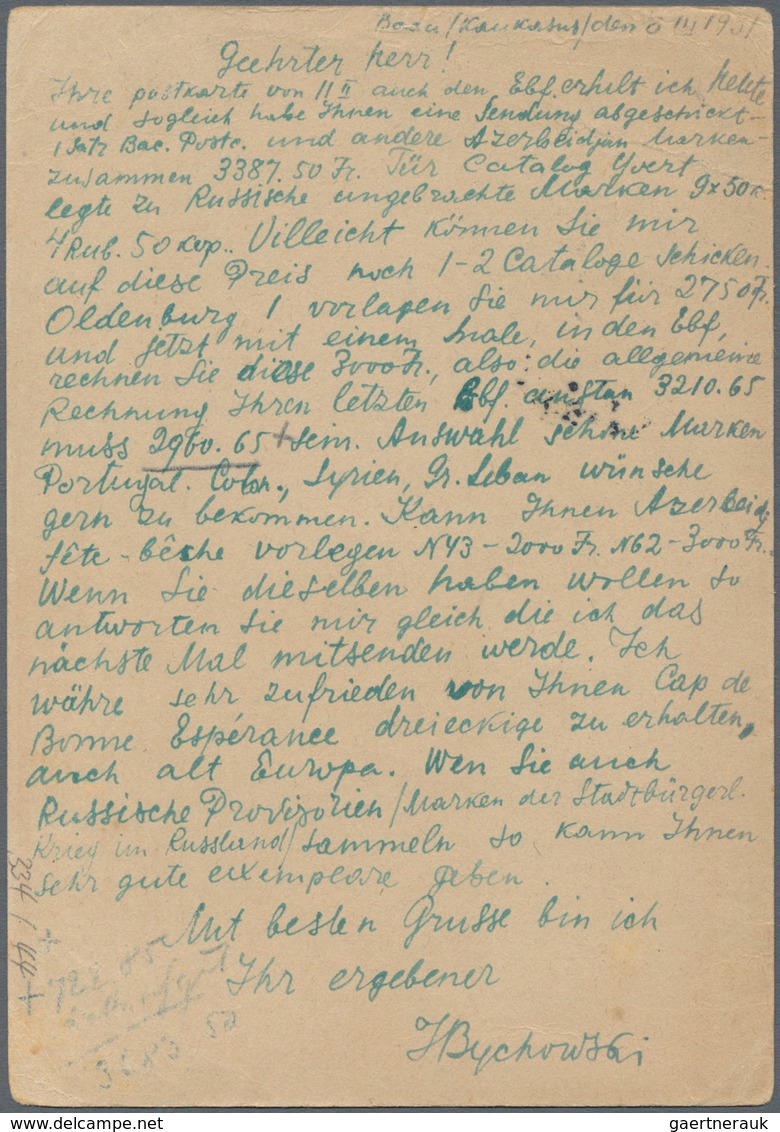 Baku /Kaukasus/ den 6 III 1931
Geehrter Herr!
Ihre postkarte von 11 II auch den Ebf. erhilt ich heute
und sogleich habe Ihnen eine Sendung abgeschickt -
1 Satz Bac. Postc. und andere Azerbeidjan Marken -
zusammen 3387.50 Fr. Für Catalog Yvert
legte zu Russische ungebrachte Marken 9x50 k.
4 Rub. 50 kop.. Villeicht können Sie mir
auf diese Preis noch 1-2 Cataloge schicken.
Oldenburg 1 vorlagen Sie mir für 2750 Fr.
und jetzt mit einem male, in den Ebf,
rechnen Sie diese 3000 Fr., also die allgemeine
Rechnung Ihren letzten Ebf. anstan 3210.65
muss 2960.65 + sein. Auswahl schöne Marken
Portugal. Colon., Syrien, Gr. Liban wünsche
gern zu bekommen. Kann Ihnen Azerbeidj.
tête-bêche vorlegen N43 - 2000 Fr. N62 - 3000 Fr..
Wenn Sie dieselben haben wollen so
antworten Sie mir gleich die ich das
nächste Mal mitsenden werde. Ich
währe sehr zufrieden von Ihnen Cap de
Bonne Espérance dreieckige zu erhalten,
auch alt Europa. Wen Sie auch
Russische Provisorien /Marken der Stadtbürgerl.
Krieg im Russland/ sammeln so kann Ihnen
sehr gute exemplare geben.
Mit besten Grusse bin ich
Ihr ergebener
J Bychowski
234 / 44 +
3583 50
gaertnerauk